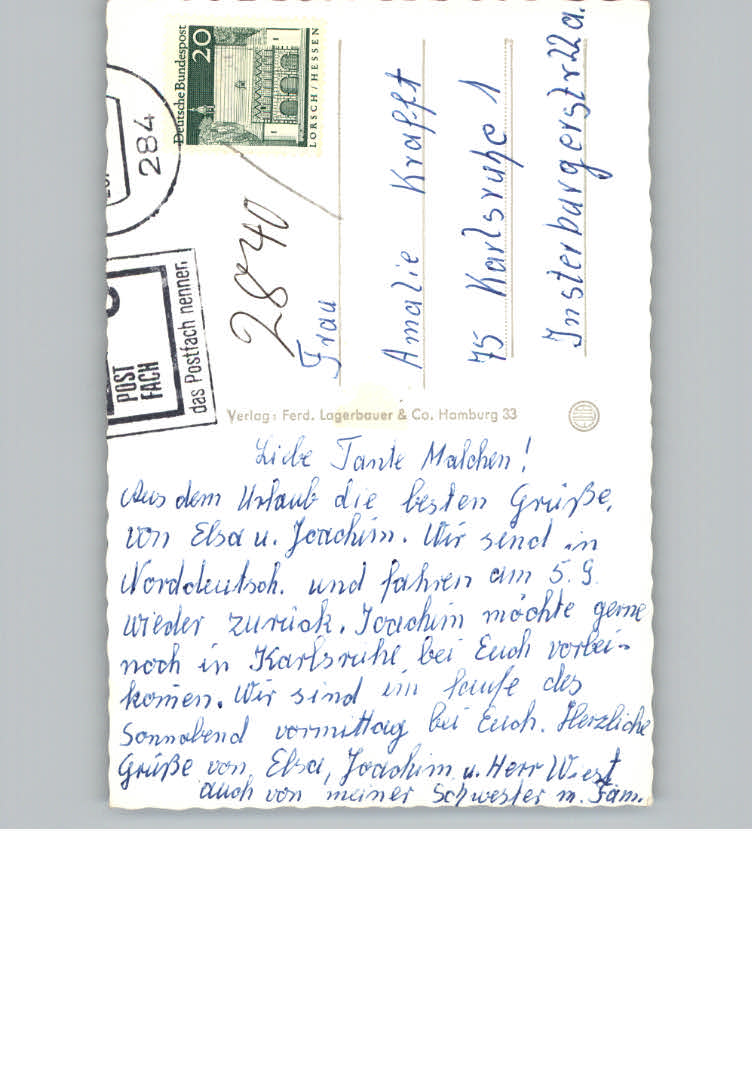 Deutsche Bundespost
20
LORSCH/HESSEN
284
POST
FACH
das Postfach nennen,
2840
Frau
Amalie Krafft
75 Karlsruhe 1
Insterburgerstr 22a.
Verlag: Ferd. Lagerbauer & Co. Hamburg 33
Liebe Tante Malchen!
Aus dem Urlaub die besten Grüße,
von Elsa u. Joachim. Wir sind in
Norddeutsch. und fahren am 5.9.
wieder zurück. Joachim möchte gerne
noch in Karlsruhe bei Euch vorbei-
komen. Wir sind im laufe des
Sonnabend vormittag bei Euch. Herzliche
Grüße von Elsa, Joachim u. Herr Wiest
auch von meiner Schwester m. Fam.